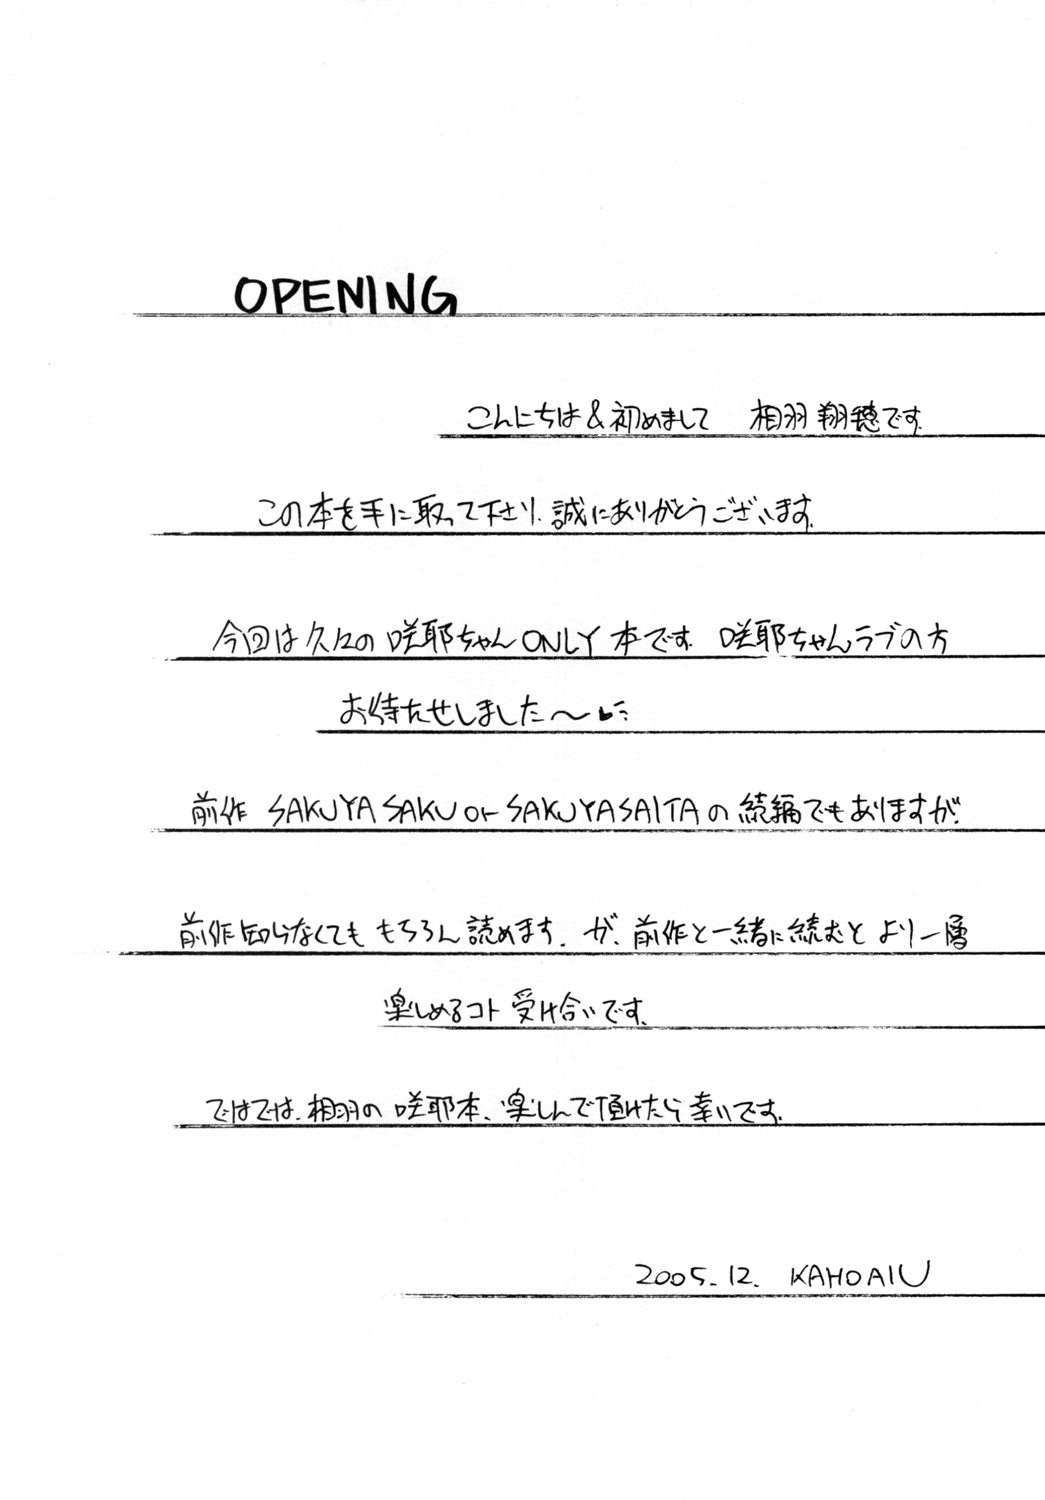 OPENING
こんにちは&初めまして 相羽 翔穂です。
この本を手に取って下さり、誠にありがとうございます。
今回は久々の咲耶ちゃんONLY本です。咲耶ちゃんラブの方
お待たせしました～
前作 SAKUYA SAKU or SAKUYASAITAの続編でもありますが、
前作知らなくても もちろん読めます。が、前作と一緒に続むと より一層
楽しめるコト 受け合いです。
ではでは、相羽の 咲耶本、楽しんで頂けたら幸いです。
2005.12. KAHOAIU